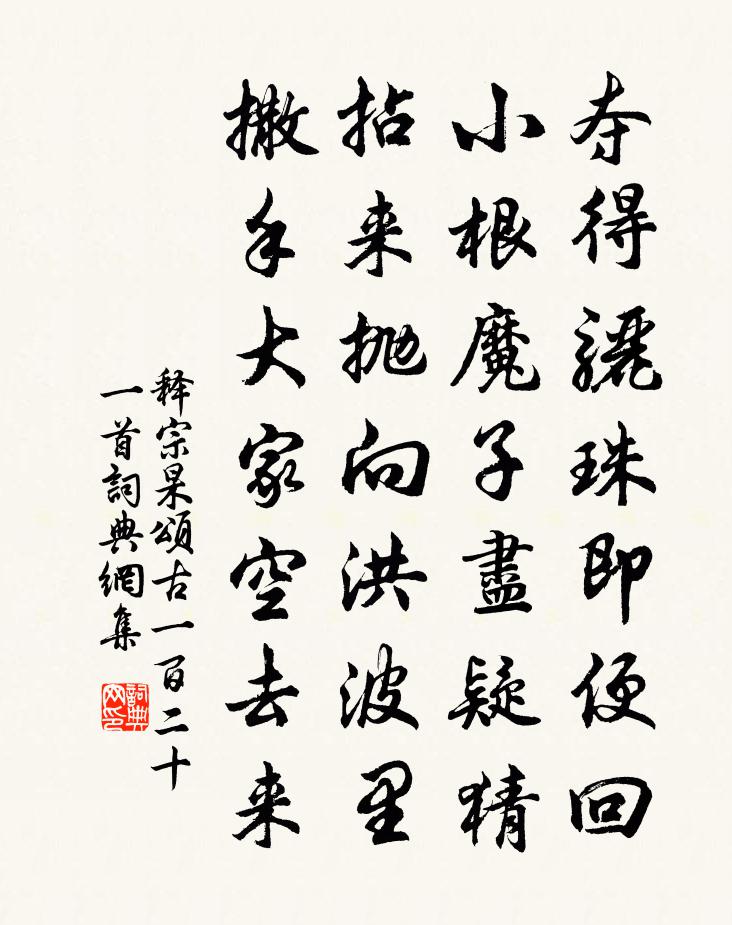 夺得驪珠即便回
小根魔子盡疑猜
拈来抛向洪波里
撒手大家空去来
释宗杲頌古一百二十
一首詞典網集
詞典网印